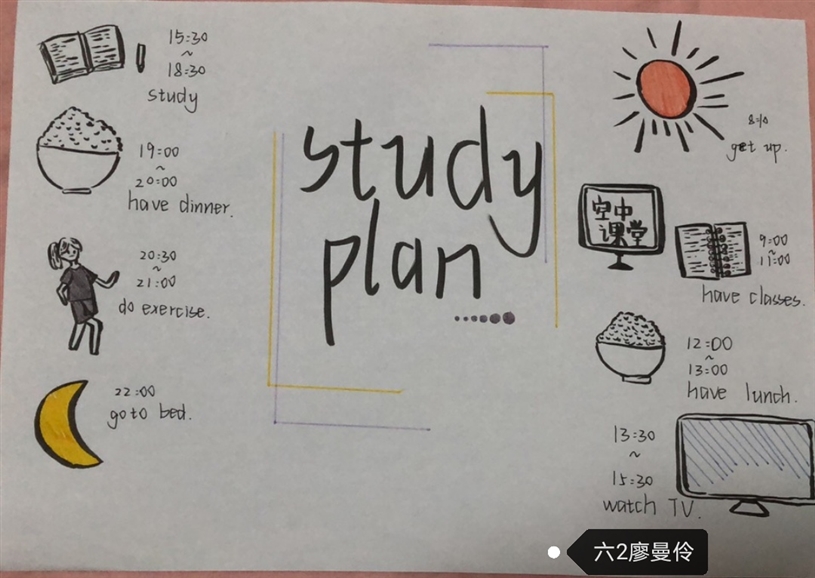 study
plan
8:10
get up.
空中
课堂
9:00
~
11:00
have classes.
12:00
~
13:00
have lunch.
13:30
~
15:30
watch TV.
15:30
~
18:30
study
19:00
~
20:00
have dinner.
20:30
~
21:00
do exercise.
22:00
go to bed.
六2廖曼伶